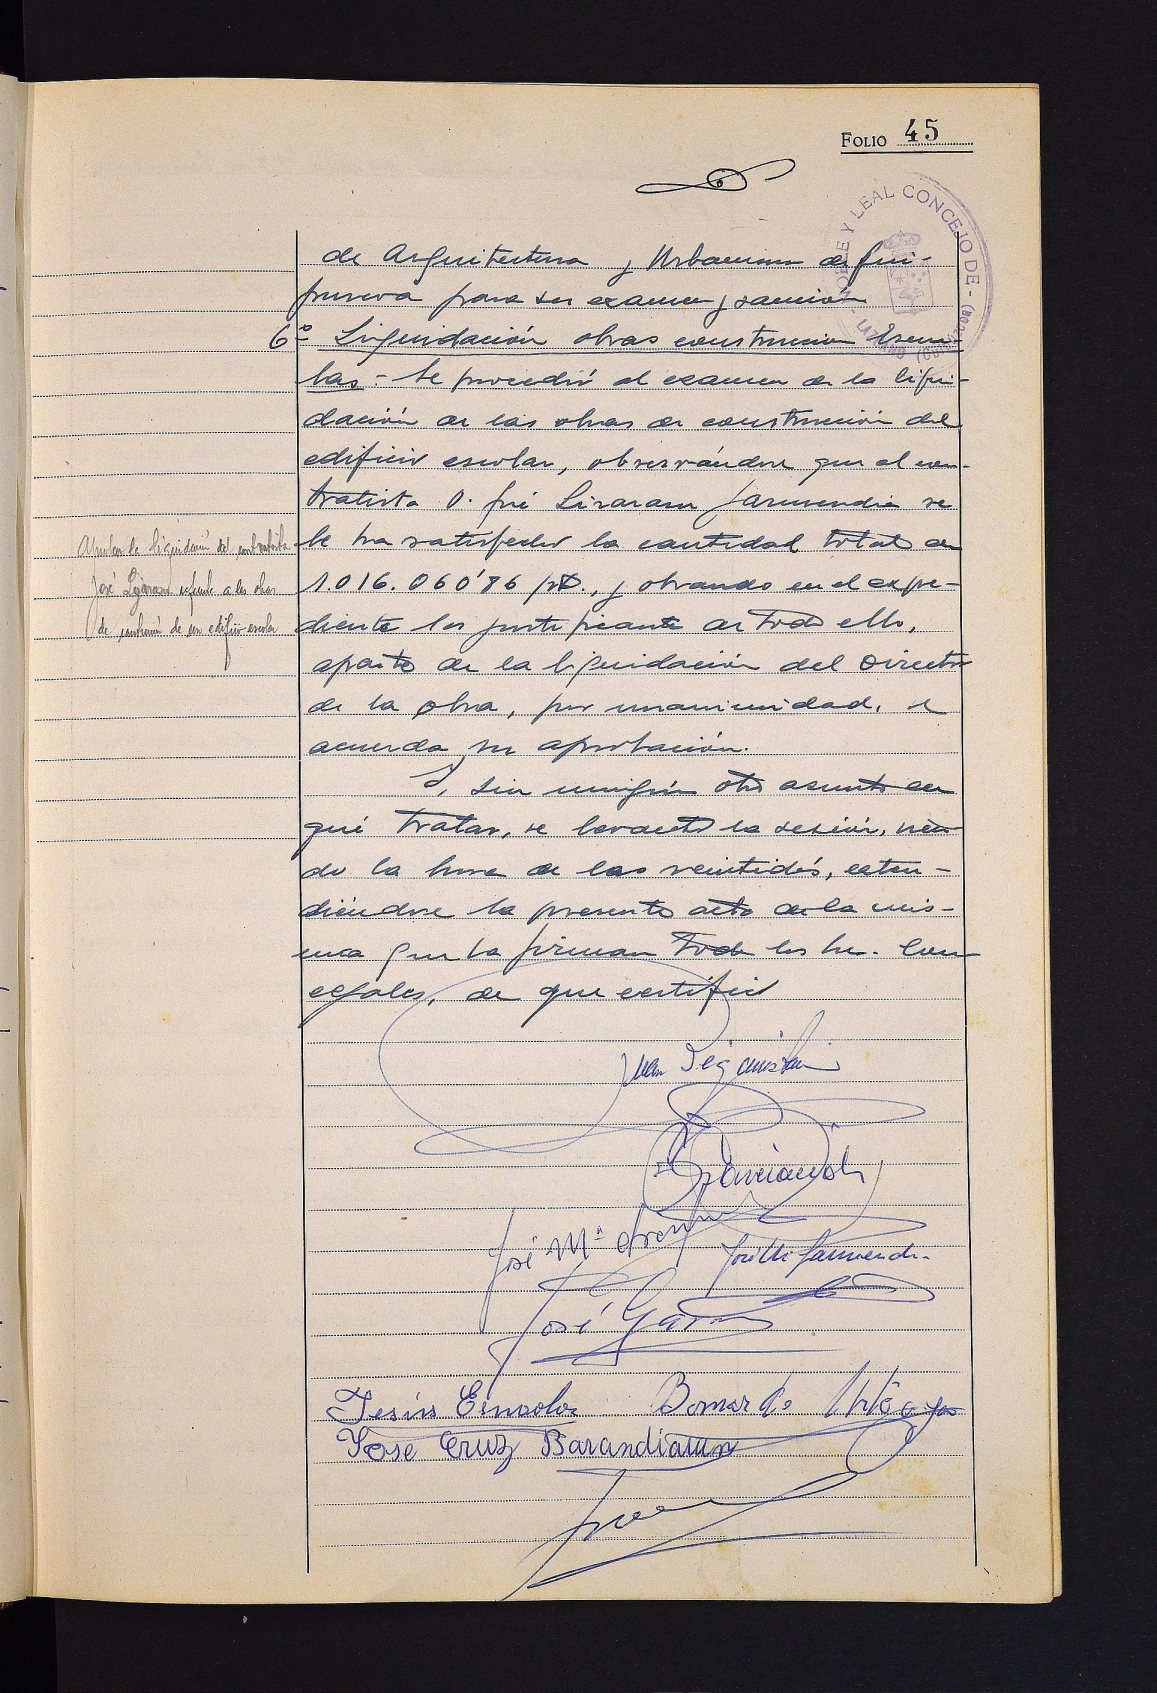 FOLIO 45
NOBLE Y LEAL CONCEJO DE - LAZCANO (Guipúzcoa) -
de Arquitectura y Urbanismo de Gui-
púzcoa para su examen y sanción
6º Liquidación obras construcción Escue-
las.- Se procedió al examen de la liqui-
dación de las obras de construcción del
edificio escolar, observándose que al con-
tratista D. José Lizaram Garmendia se
le ha satisfecho la cantidad total de
1.016.060'86 pts., y obrando en el expe-
diente los justificantes de todo ello,
aparte de la liquidación del Director
de la obra, por unanimidad, se
acuerda su aprobación.
Aprobar la liquidación del contratista
José Lizaram referente a las obras
de construcción de un edificio escolar
Y, sin ningún otro asunto en
qué tratar, se levantó la sesión, sien-
do la hora de las veintidós, exten-
diéndose la presente acta de la mis-
ma que la firman todos los Sres. Con-
cejales, de que certifico
Juan
José Mª
José Mª Garmendia
José
Jesús
Bernardo
José Cruz Barandiaran